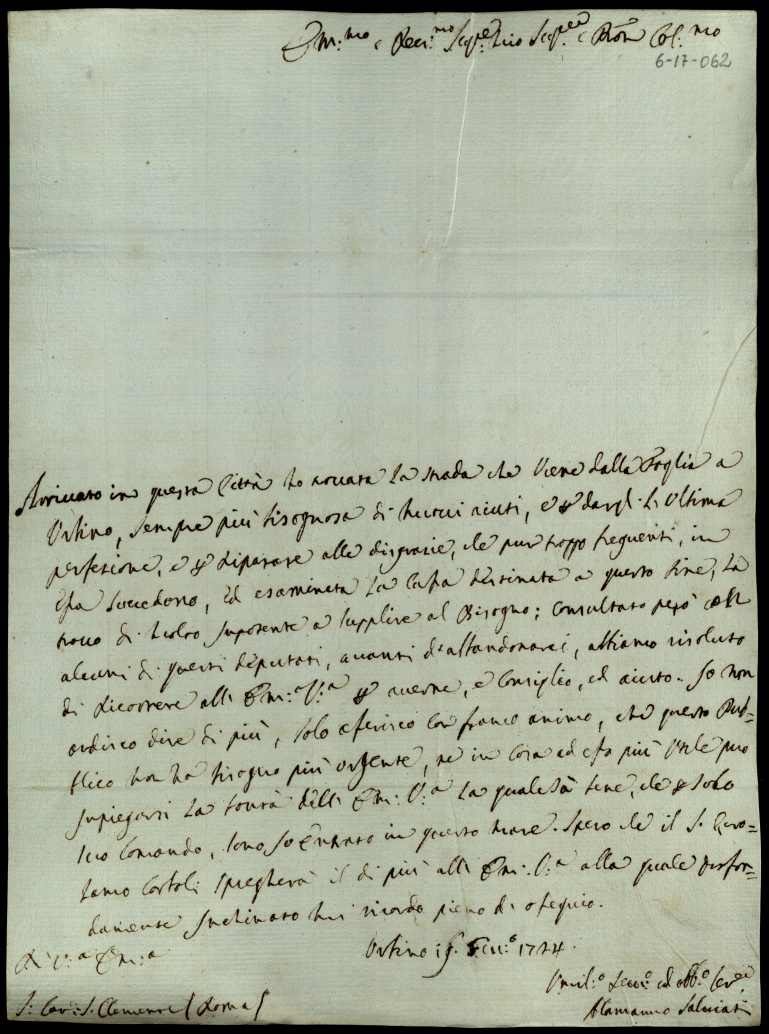 Em:mo e Rev:mo Sig:re mio Sig:re e Pron Col:mo
6-17-062
Arrivato in questa Città ho trovata la strada che viene dalla Foglia a
Urbino, sempre più bisognosa di nuovi aiuti, e per dargli l'ultima
perfezione, e per riparare alle disgrazie, che pur troppo frequenti, in
essa succedono, ed esaminata la Cassa destinata a questo fine, la
trovo di molto impotente a supplire al bisogno; consultato però con
alcuni di questi deputati, avanti d'abbandonarci, abbiamo risoluto
di ricorrere all' Em:a V:a per averne, e consiglio, ed aiuto. Io non
ardisco dire di più, solo asserisco con franco animo, che questo Pub=
blico non ha bisogno più urgente, ne in cosa ad essa più utile può
impiegarsi la bontà dell' Em: V:a la quale sà bene, che per solo
suo comando, sono Io entrato in questo mare. Spero che il S. Giro=
lamo Bartoli spiegherà il di più all' Em: V:a alla quale profon=
damente inchinato mi ricordo pieno di ossequio.
Di V:a Em:a
Urbino 19. 1724.
Umil:o Dev:o ed Obb:o Ser:e
Alamanno Salviati
S: Car: S. Clemente (Roma)